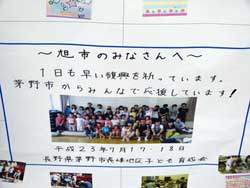 ～旭市のみなさんへ～
1日も早い復興を祈っています。
茅野市からみんなで応援しています!
平成23年7月17・18日
長野県茅野市長峰地区子ども育成会